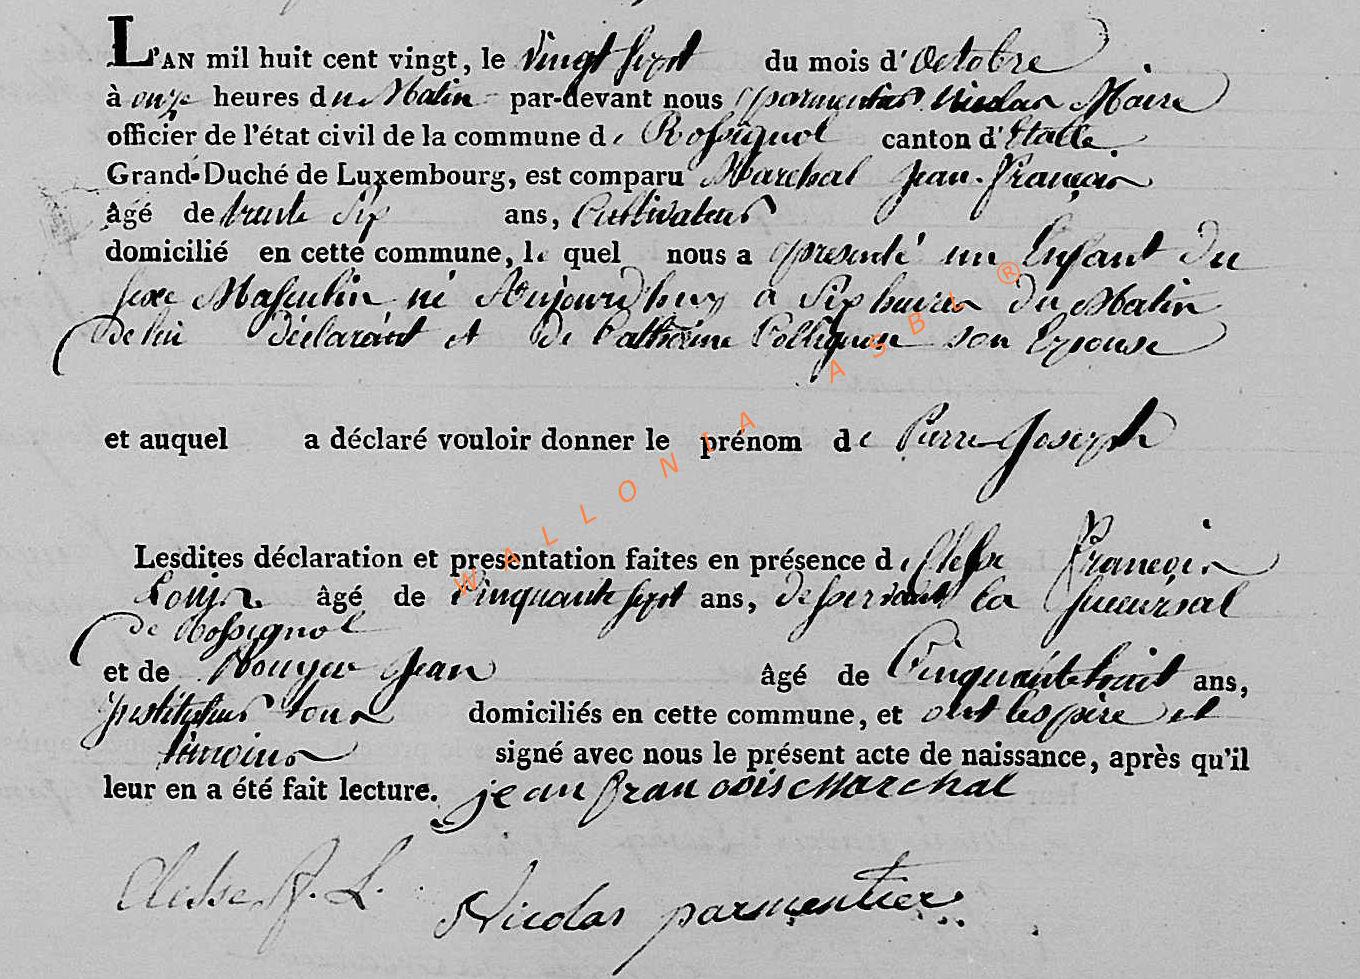 L'AN mil huit cent vingt, le vingt sept du mois d'octobre
à onze heures du Matin par-devant nous parmentier nicolas Maire
officier de l'état civil de la commune de Rossignol canton d'Etalle.
Grand-Duché de Luxembourg, est comparu Marchal Jean-François
âgé de trente Six ans, Cultivateur
domicilié en cette commune, le quel nous a presenté un Enfant du
sexe Masculin né Aujourd'huy a Six heures du Matin
de lui déclarant et de Catherine Collignon son Epouse
et auquel a déclaré vouloir donner le prénom de Pierre Joseph
Lesdites déclaration et presentation faites en présence de Clesse François
Louis âgé de Cinquante sept ans, desservant la succursal
de Rossignol
et de Jean âgé de Cinquante huit ans,
instituteur tous domiciliés en cette commune, et ont les père et
témoins signé avec nous le présent acte de naissance, après qu'il
leur en a été fait lecture. jean francois Marchal
Clesse f. L. Nicolas parmentier
WALLONIA ASBL ®